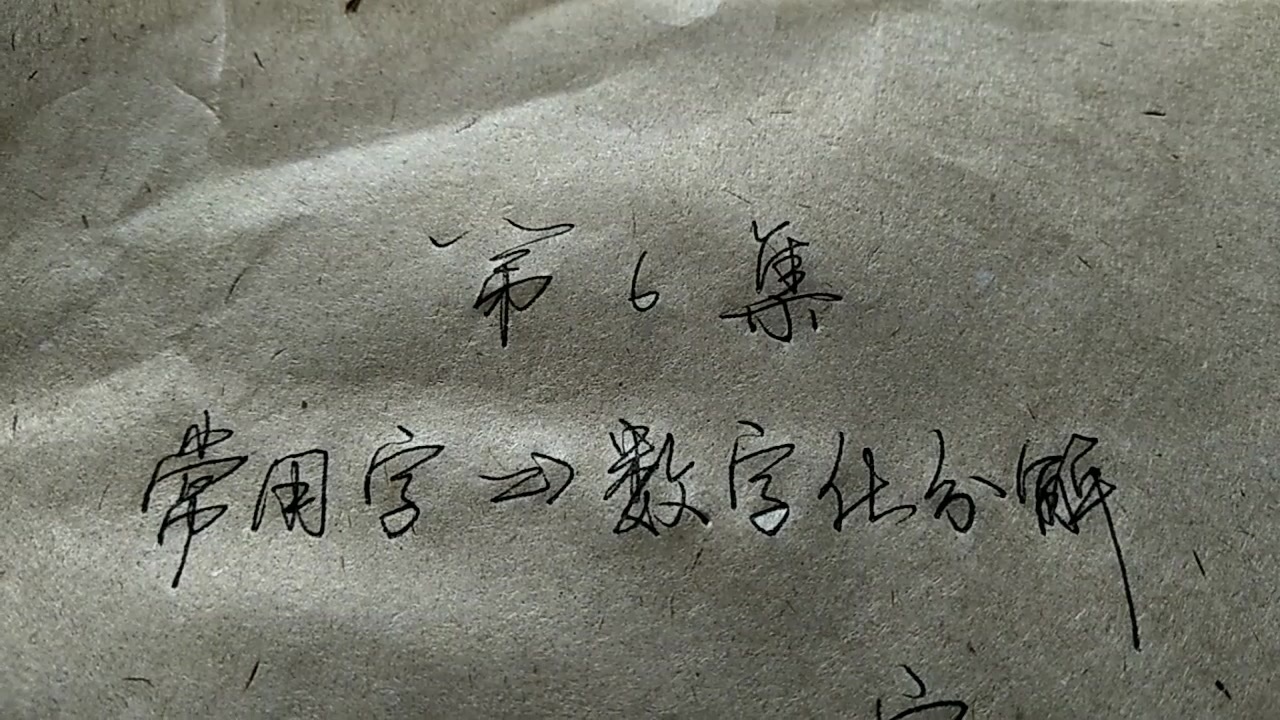 第6集
常用字⇒数字化分解